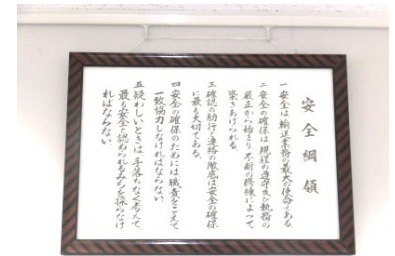 安全綱領
一安全は、輸送業務の最大の使命である
二安全の確保は、規程の遵守及び執務の
厳正から始まり、不断の修練によって、
築きあげられる
三確認の励行と連絡の徹底は、安全の確保
に最も大切である、
四安全の確保のためには、職責をこえて
一致協力しなければならない
五疑わしいときは、手落ちなく考えて、
最も安全と認められるみちを採らなけ
ればならない